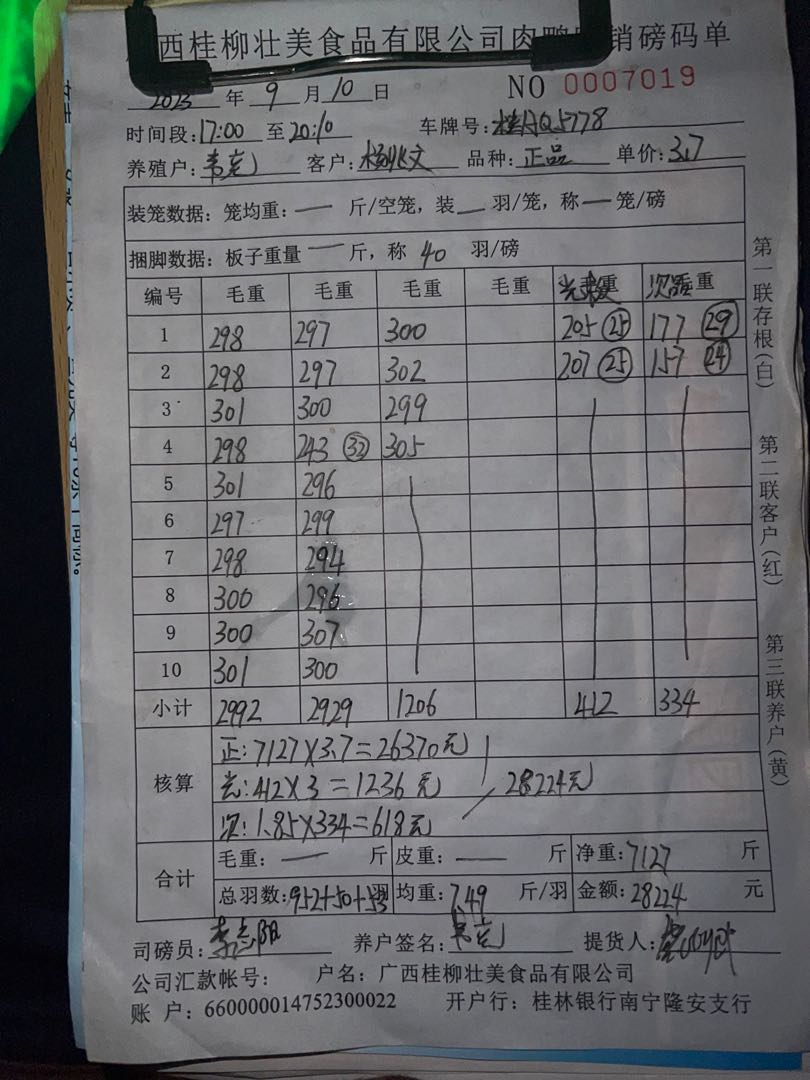 西桂柳壮美食品有限公司肉鸭 销磅码单
2023 年 9 月 10 日 NO 0007019
时间段: 17:00 至 20:10 车牌号: 桂AQ5778
养殖户: 客户: 品种: 正品 单价: 3.7
装笼数据: 笼均重: — 斤/空笼, 装 — 羽/笼, 称 — 笼/磅
捆脚数据: 板子重量 — 斤, 称 40 羽/磅
编号 毛重 毛重 毛重 毛重 重 重
1 298 297 300 205 25 177 29
2 298 297 302 207 25 157 24
3 301 300 299
4 298 243 32 305
5 301 296
6 297 299
7 298 294
8 300 296
9 300 307
10 301 300
小计 2992 2929 1206 412 334
核算
正: 7127×3.7=26370元
光: 412×3=1236元 28224元
次: 1.85×334=618元
合计
毛重: — 斤 皮重: — 斤 净重: 7127 斤
总羽数: 952+50+53 羽 均重: 7.49 斤/羽 金额: 28224 元
司磅员: 李志阳 养户签名: 提货人:
公司汇款帐号: 户名: 广西桂柳壮美食品有限公司
账 户: 660000014752300022 开户行: 桂林银行南宁隆安支行
第一联存根(白)
第二联客户(红)
第三联养户(黄)